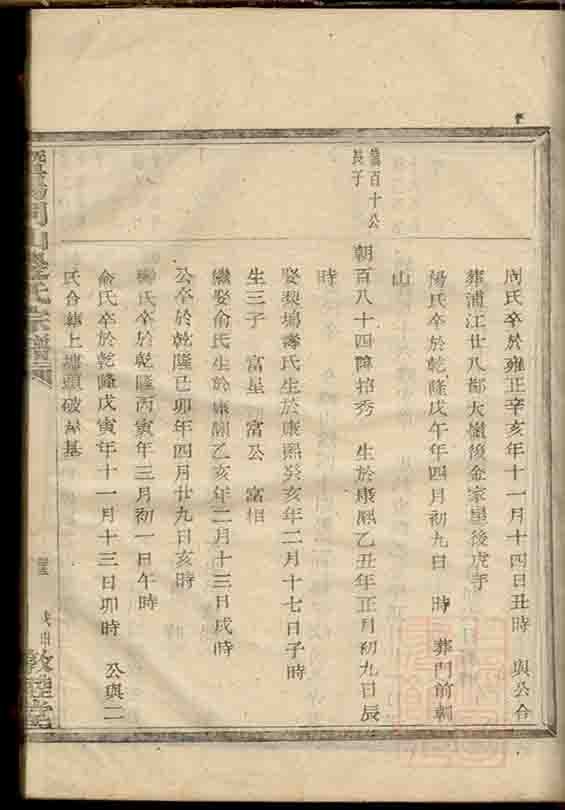 周氏卒於雍正辛亥年十一月十四日丑時 與公合
葬浦江廿八都大嶺後金家星後虎
陽氏卒於乾隆戊午年四月初九日 時 葬門前朝
山
百十公
長子
朝百八十四 秀 生於康熙乙丑年正月初九日辰
時
娶 壽氏生於康熙癸亥年二月十七日子時
生三子 富星 富公 富相
繼娶俞氏生於康熙乙亥年二月十三日戌時
公卒於乾隆己卯年四月廿九日亥時
氏卒於乾隆丙寅年三月初一日午時
俞氏卒於乾隆戊寅年十一月十三日卯時 公與二
氏合葬上 頭破 基
山 氏宗譜
敦睦堂